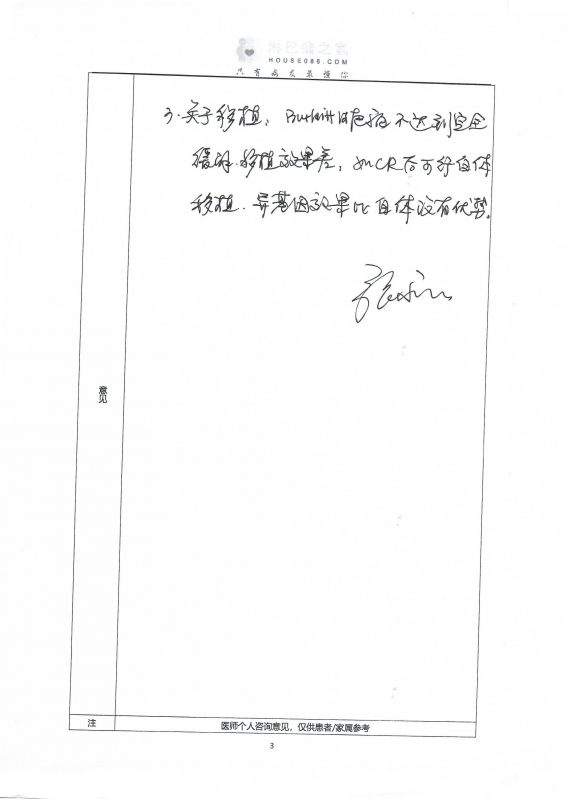 淋巴瘤之家
HOUSE086.COM
只有病友最懂你
3. 关于移植, Burkitt淋巴瘤不达到完全
缓解,移植效果差, 如CR后可行自体
移植.异基因效果比自体没有优势。
意见
注
医师个人咨询意见，仅供患者/家属参考
3